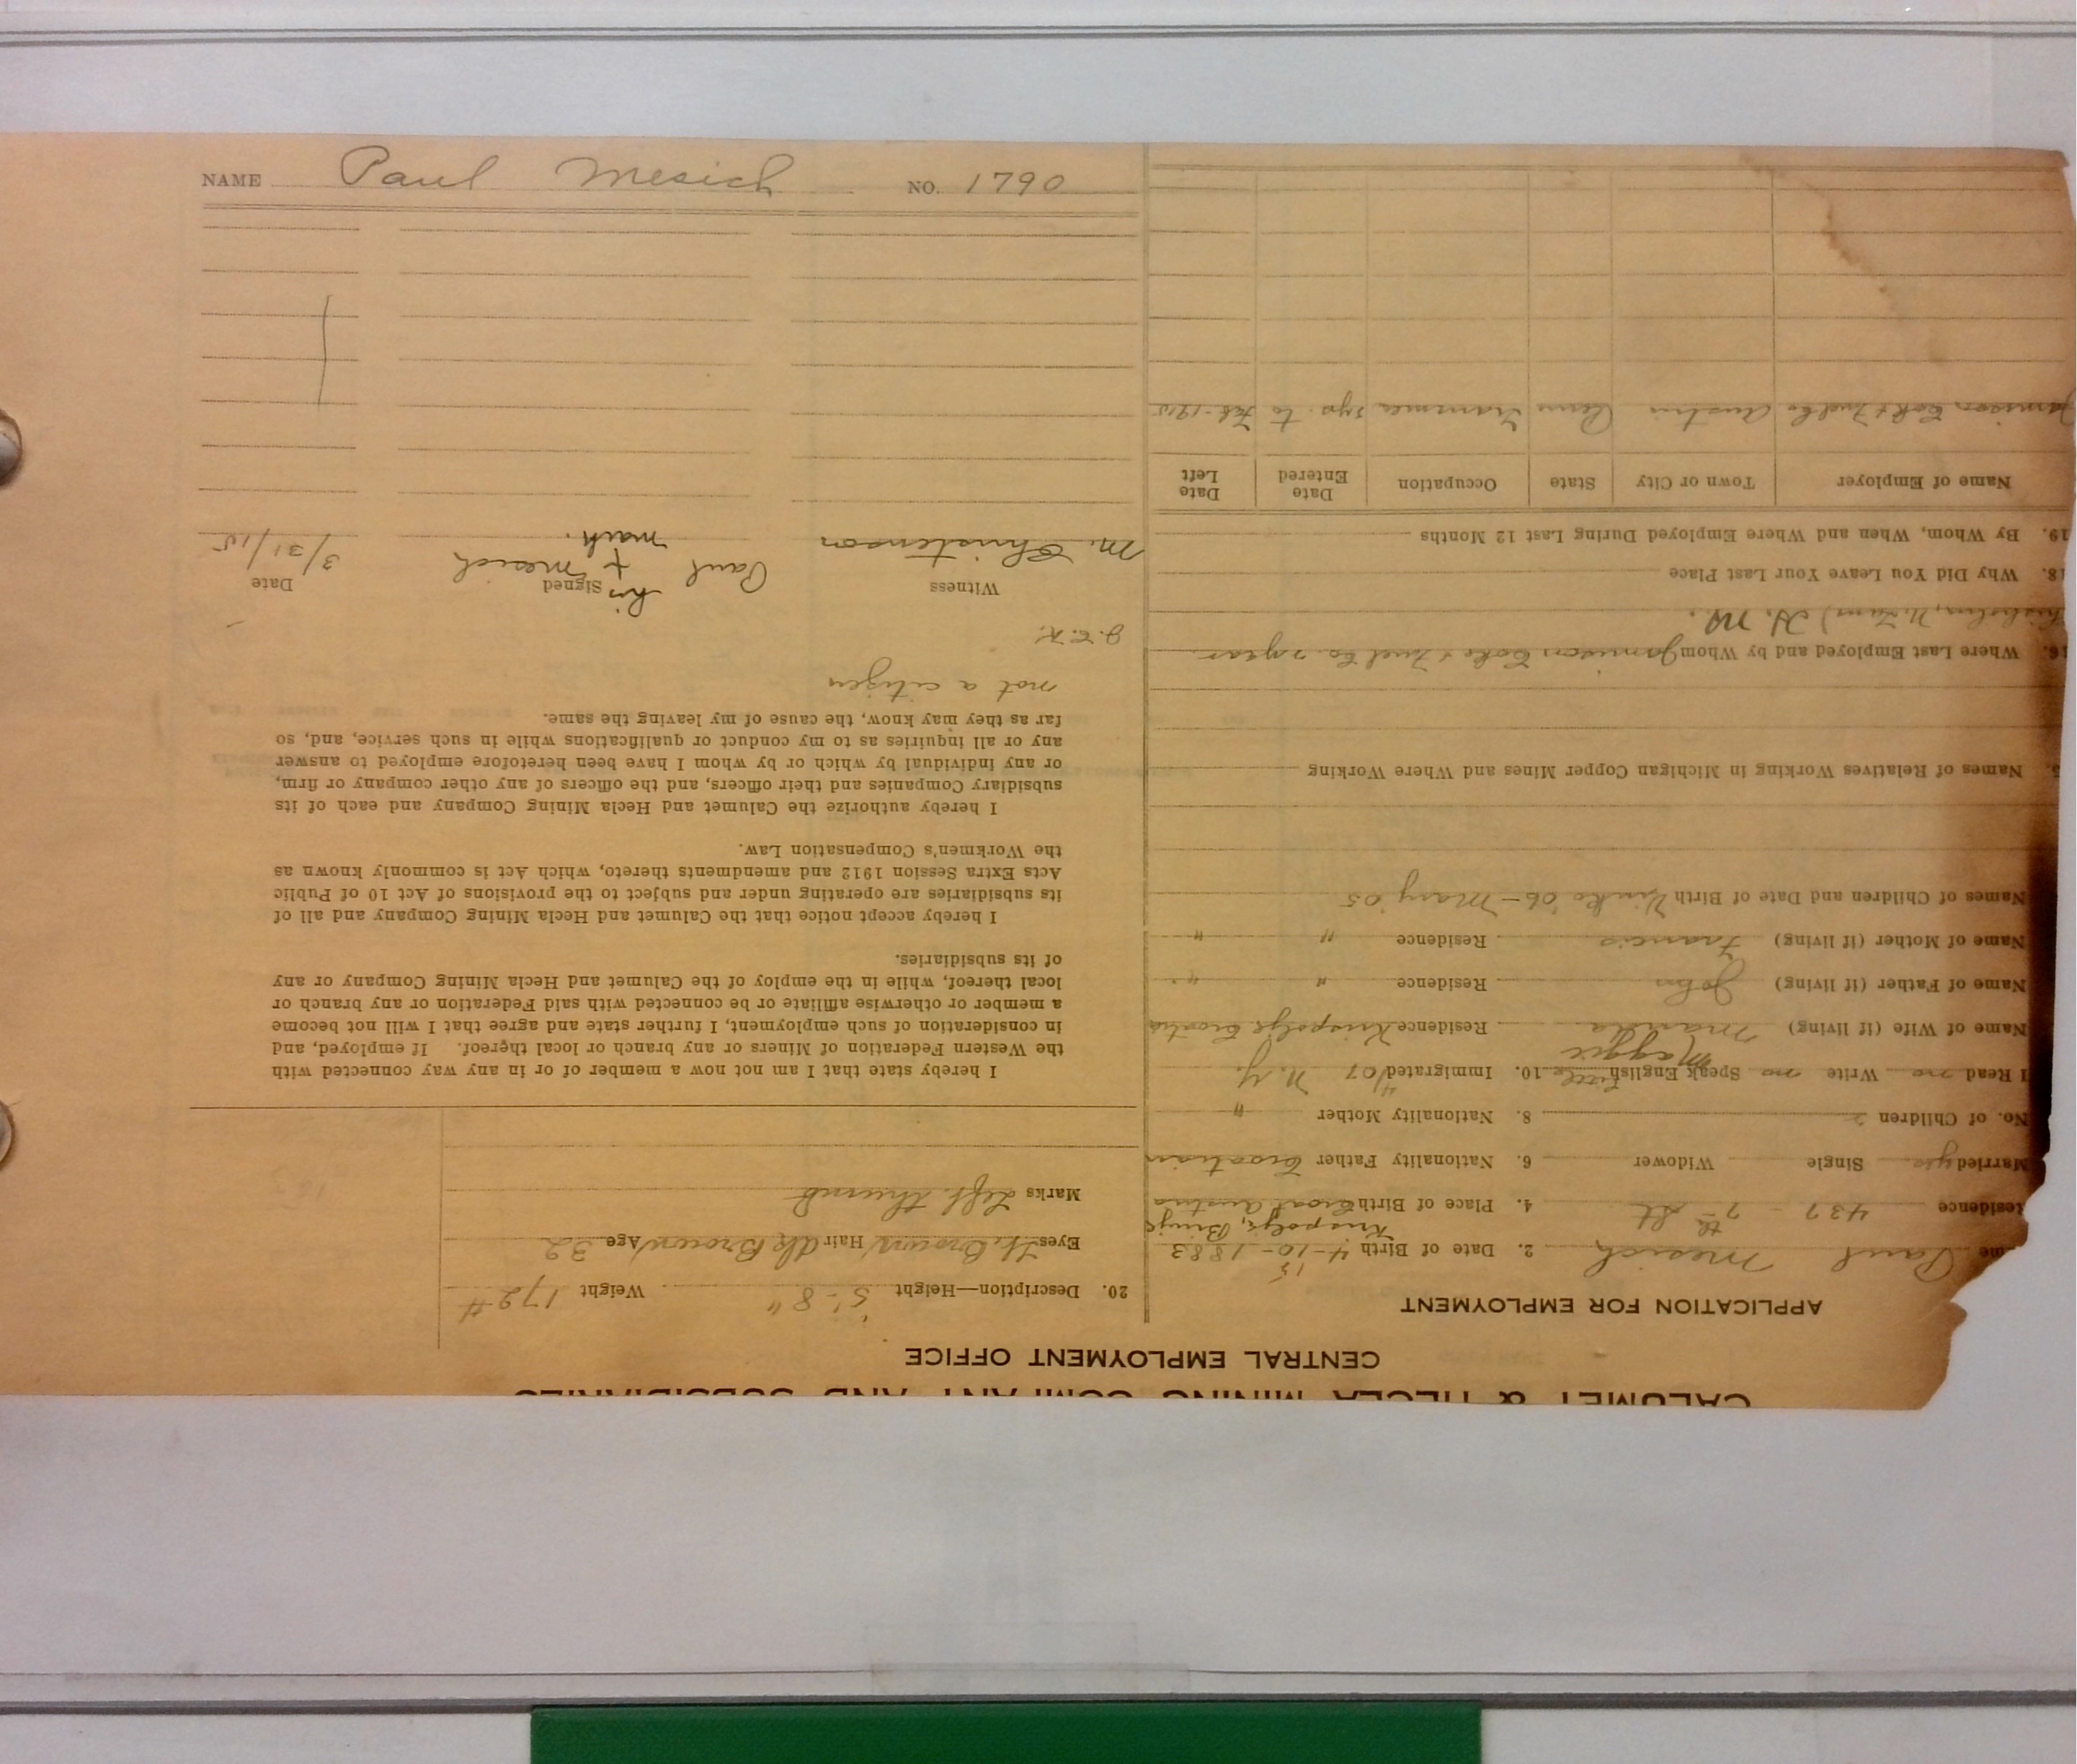 NAME Paul Mesich NO. 1790
CALUMET & HECLA MINING COMPANY AND SUBSIDIARIES
CENTRAL EMPLOYMENT OFFICE
APPLICATION FOR EMPLOYMENT
me Paul Mesich 2. Date of Birth 4-10-1883
15
Residence 437 - 7th St 4. Place of Birth Croat Austria
Married yes Single Widower 6. Nationality Father Croatian
No. of Children 2 8. Nationality Mother "
I Read no Write no Speak English little 10. Immigrated 4/07 N.Y.
Maggie
Name of Wife (if living) Manda Residence Croatia
Name of Father (if living) John Residence " "
Name of Mother (if living) Francis Residence " "
Names of Children and Date of Birth Vinko 06 - Mary 05
5. Names of Relatives Working in Michigan Copper Mines and Where Working
16. Where Last Employed and by Whom Jamison Coke & Fuel Co. 2 year
18. Why Did You Leave Your Last Place
19. By Whom, When and Where Employed During Last 12 Months
Name of Employer Town or City State Occupation Date Entered Date Left
Jamison Coke & Fuel Co Austria Penn Trammer 2 yrs. to Feb-1915
20. Description—Height 5'-8" Weight 172#
Eyes Lt. Brown Hair dk Brown Age 32
Marks Left thumb
I hereby state that I am not now a member of or in any way connected with
the Western Federation of Miners or any branch or local thereof. If employed, and
in consideration of such employment, I further state and agree that I will not become
a member or otherwise affiliate or be connected with said Federation or any branch or
local thereof, while in the employ of the Calumet and Hecla Mining Company or any
of its subsidiaries.
I hereby accept notice that the Calumet and Hecla Mining Company and all of
its subsidiaries are operating under and subject to the provisions of Act 10 of Public
Acts Extra Session 1912 and amendments thereto, which Act is commonly known as
the Workmen's Compensation Law.
I hereby authorize the Calumet and Hecla Mining Company and each of its
subsidiary Companies and their officers, and the officers of any other company or firm,
or any individual by which or by whom I have been heretofore employed to answer
any or all inquiries as to my conduct or qualifications while in such service, and, so
far as they may know, the cause of my leaving the same.
not a citizen
J.E.K.
Witness Signed Date
his
M. Christenson Paul + Mesich 3/31/15
mark.